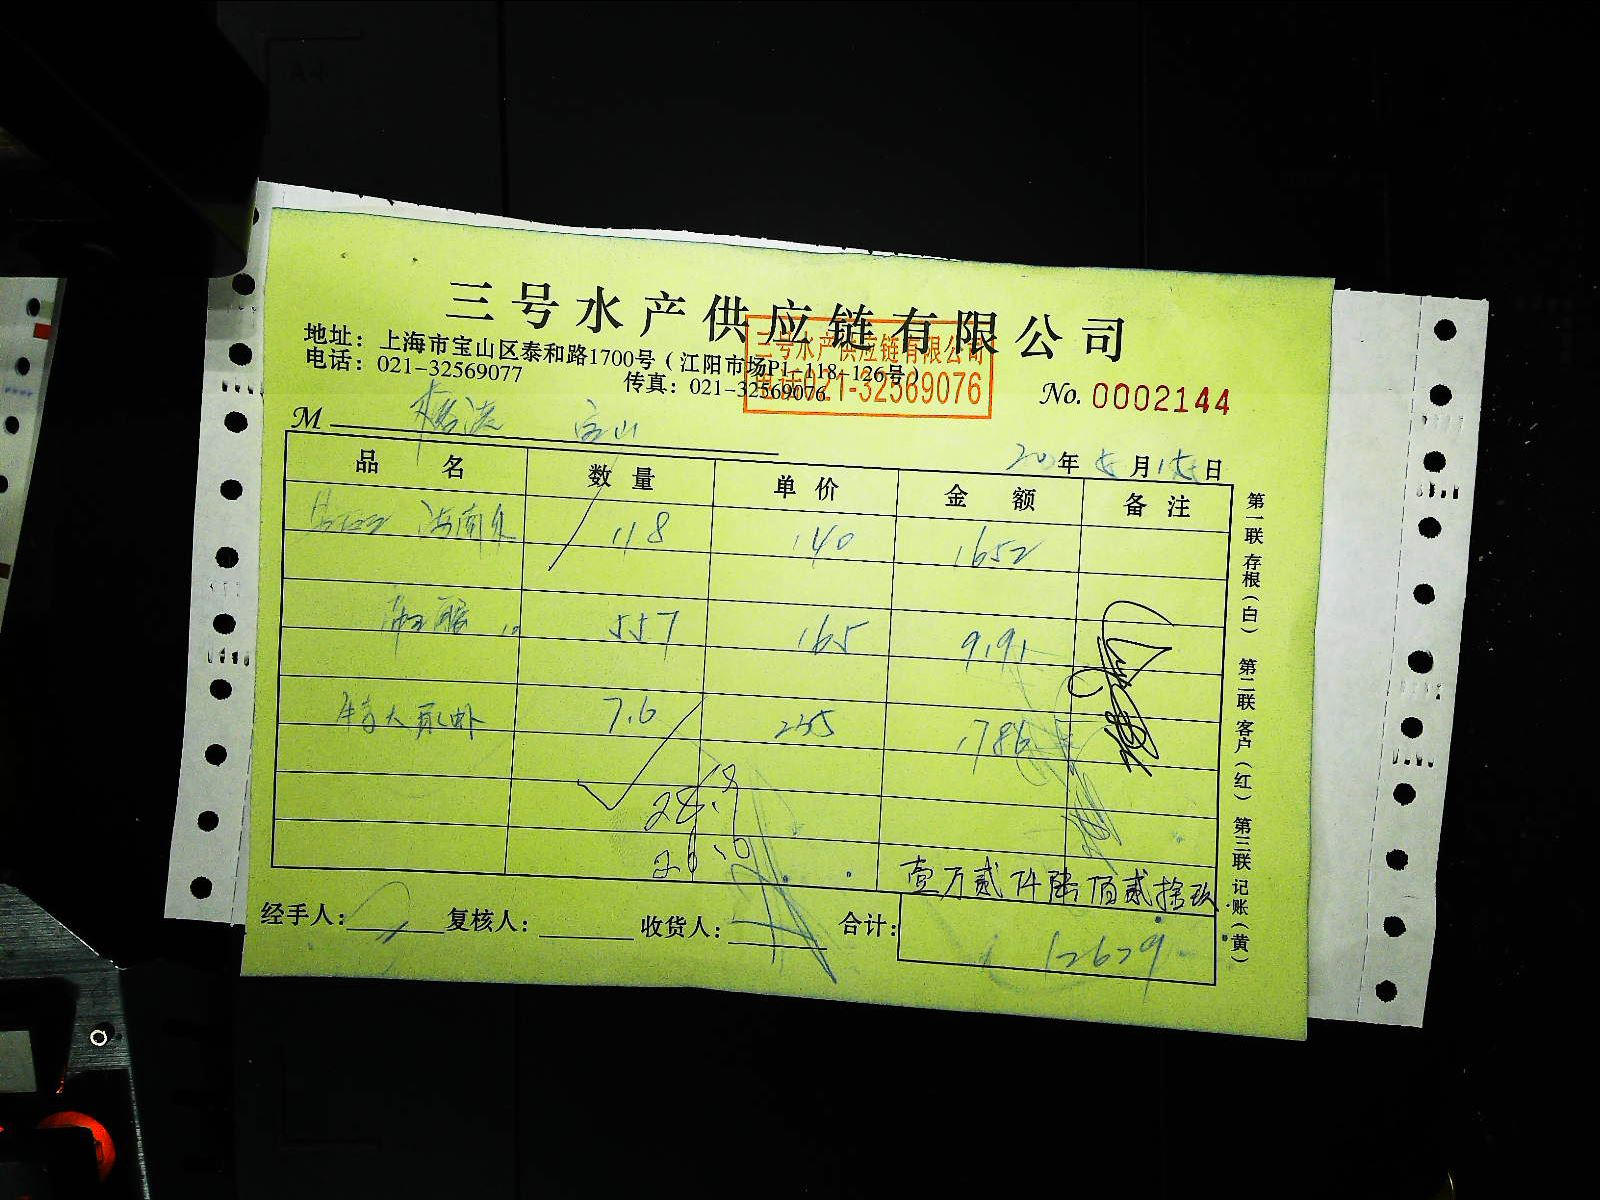 三号水产供应链有限公司
地址：上海市宝山区泰和路1700号（江阳市场P1-118-126号）
电话：021-32569077 传真：021-32569076
三号水产供应链有限公司
电话021-32569076
No. 0002144
M 宝山
年 月 日
品名 数量 单价 金额 备注
118 140 1652
557 165 919
特大 虾 7.6 235 1786
28.9
26.6
壹万贰仟陆佰贰拾玖
经手人： 复核人： 收货人： 合计： 12629
第一联 存根（白） 第二联 客户（红） 第三联 记账（黄）